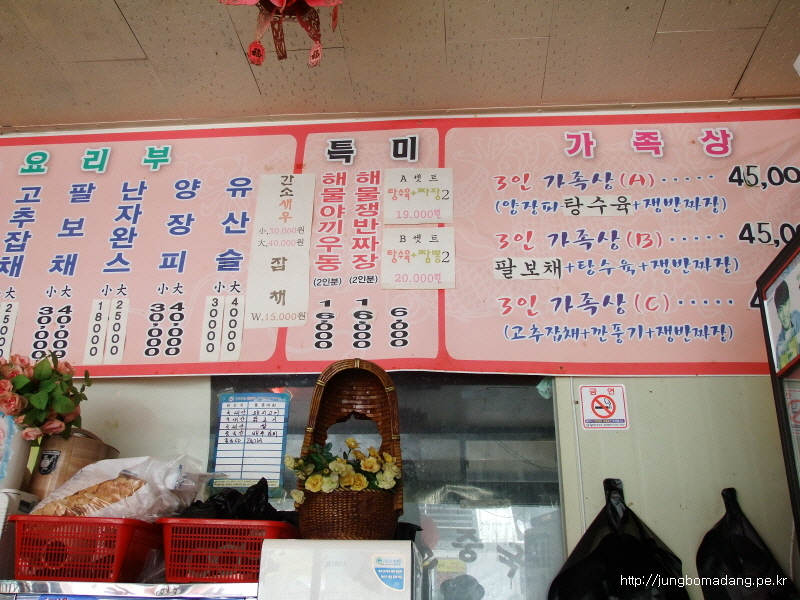 요리부
고추잡채
小 大
팔보채
小 大
30,000
40,000
난자완스
小 大
18000
25000
양장피
小 大
30,000
40,000
유산슬
小 大
30000
40000
간소새우
小, 30,000원
大, 40,000원
잡채
W, 15,000원
특미
해물야끼우동
(2인분)
16,000
해물쟁반짜장
(2인분)
16,000
6,000
A 셋트
탕수육+짜장2
19,000원
B 셋트
탕수육+짬뽕2
20,000원
가족상
3인 가족상(A)
45,00
(양장피탕수육+쟁반짜장)
3인 가족상(B)
45,0
(팔보채+탕수육+쟁반짜장)
3인 가족상(C)
4
(고추잡채+깐풍기+쟁반짜장)
금연
http://jungbomadang.pe.kr